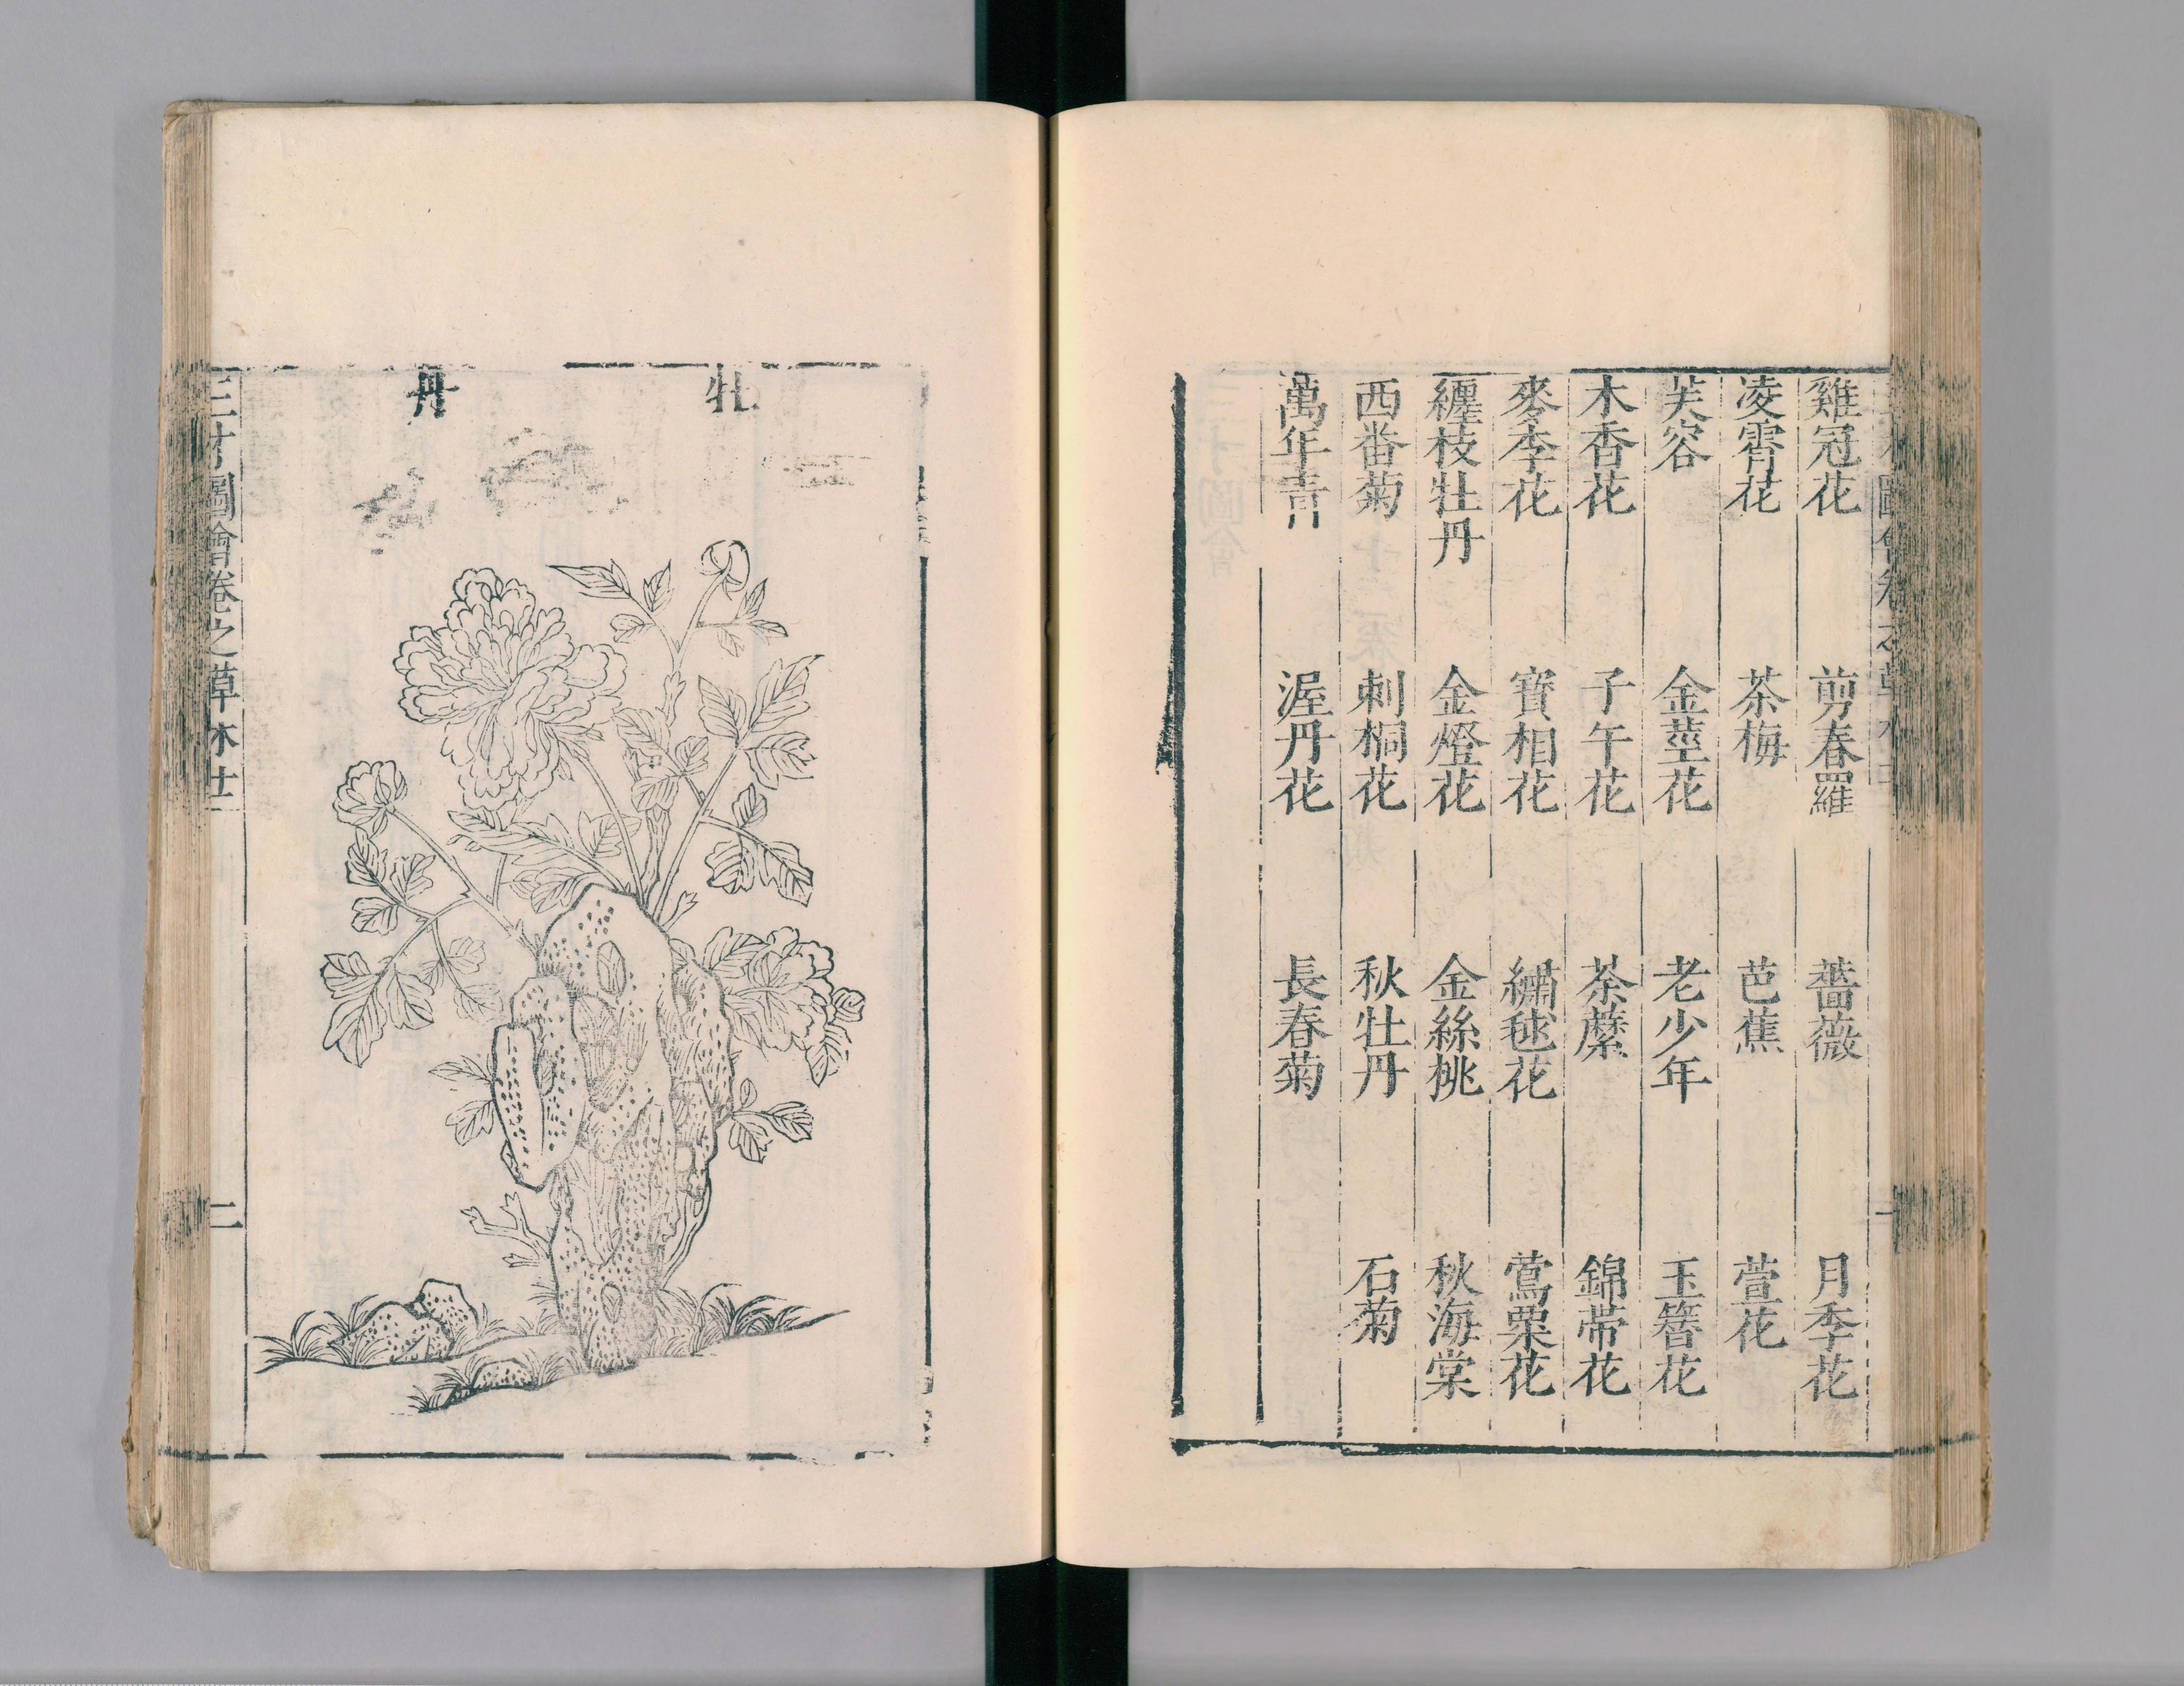 雞冠花 剪春羅 薔薇 月季花
凌霄花 茶梅 芭蕉 萱花
芙容 金莖花 老少年 玉簪花
木香花 子午花 荼蘼 錦帶花
麥李花 寶相花 繡毬花 鶯粟花
纏枝牡丹 金燈花 金絲桃 秋海棠
西番菊 刺桐花 秋牡丹 石菊
萬年青 渥丹花 長春菊
牡丹
三才圖會卷之草木 二